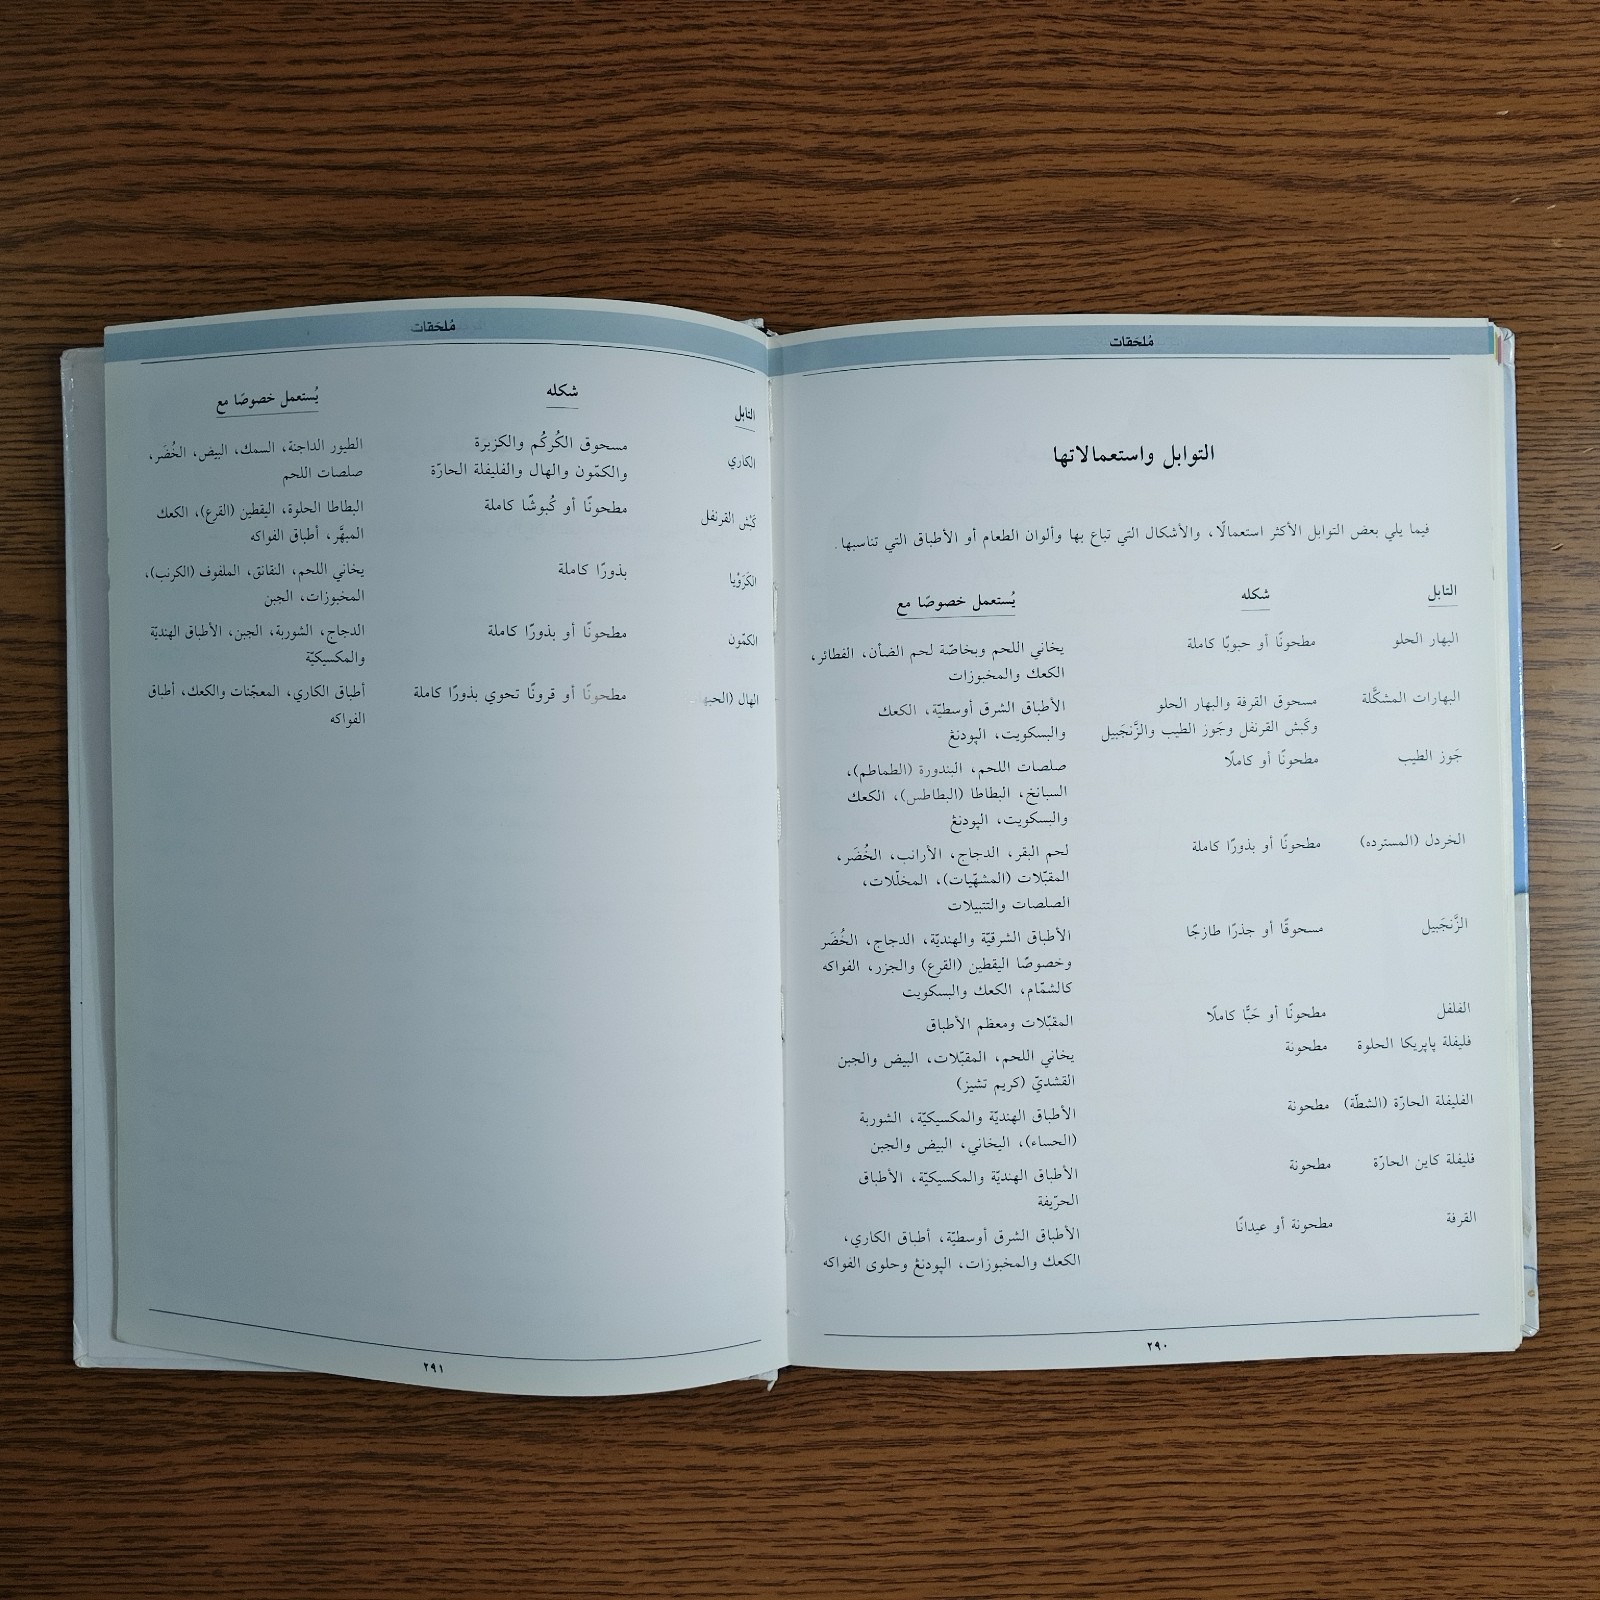 مُلحَقات
التوابل واستعمالاتها
فيما يلي بعض التوابل الأكثر استعمالًا، والأشكال التي تباع بها وألوان الطعام أو الأطباق التي تناسبها.
التابل شكله يُستعمل خصوصًا مع
البهار الحلو مطحونًا أو حبوبًا كاملة يخاني اللحم وبخاصّة لحم الضأن، الفطائر،
الكعك والمخبوزات
البهارات المشكَّلة مسحوق القرفة والبهار الحلو الأطباق الشرق أوسطيّة، الكعك
وكَبش القرنفل وجَوز الطيب والزَّنجَبيل والبسكويت، الپودنغ
جَوز الطيب مطحونًا أو كاملًا صلصات اللحم، البندورة (الطماطم)،
السبانخ، البطاطا (البطاطس)، الكعك
والبسكويت، الپودنغ
الخردل (المسترده) مطحونًا أو بذورًا كاملة لحم البقر، الدجاج، الأرانب، الخُضَر،
المقبّلات (المشهّيات)، المخلّلات،
الصلصات والتتبيلات
الزَّنجَبيل مسحوقًا أو جذرًا طازجًا الأطباق الشرقيّة والهنديّة، الدجاج، الخُضَر
وخصوصًا اليقطين (القرع) والجزر، الفواكه
كالشمّام، الكعك والبسكويت
الفلفل مطحونًا أو حَبًّا كاملًا المقبّلات ومعظم الأطباق
فليفلة پاپريكا الحلوة مطحونة يخاني اللحم، المقبّلات، البيض والجبن
القشديّ (كريم تشيز)
الفليفلة الحارّة (الشطّة) مطحونة الأطباق الهنديّة والمكسيكيّة، الشوربة
(الحساء)، اليخاني، البيض والجبن
فليفلة كاين الحارّة مطحونة الأطباق الهنديّة والمكسيكيّة، الأطباق
الحرّيفة
القرفة مطحونة أو عيدانًا الأطباق الشرق أوسطيّة، أطباق الكاري،
الكعك والمخبوزات، الپودنغ وحلوى الفواكه
٢٩٠
مُلحَقات
التابل شكله يُستعمل خصوصًا مع
الكاري مسحوق الكُركُم والكزبرة الطيور الداجنة، السمك، البيض، الخُضَر،
والكمّون والهال والفليفلة الحارّة صلصات اللحم
كَبش القرنفل مطحونًا أو كُبوشًا كاملة البطاطا الحلوة، اليقطين (القرع)، الكعك
المبهَّر، أطباق الفواكه
الكَرَوْيا بذورًا كاملة يخاني اللحم، النقانق، الملفوف (الكرنب)،
المخبوزات، الجبن
الكمّون مطحونًا أو بذورًا كاملة الدجاج، الشوربة، الجبن، الأطباق الهنديّة
والمكسيكيّة
الهال مطحونًا أو قرونًا تحوي بذورًا كاملة أطباق الكاري، المعجّنات والكعك، أطباق
الفواكه
٢٩١